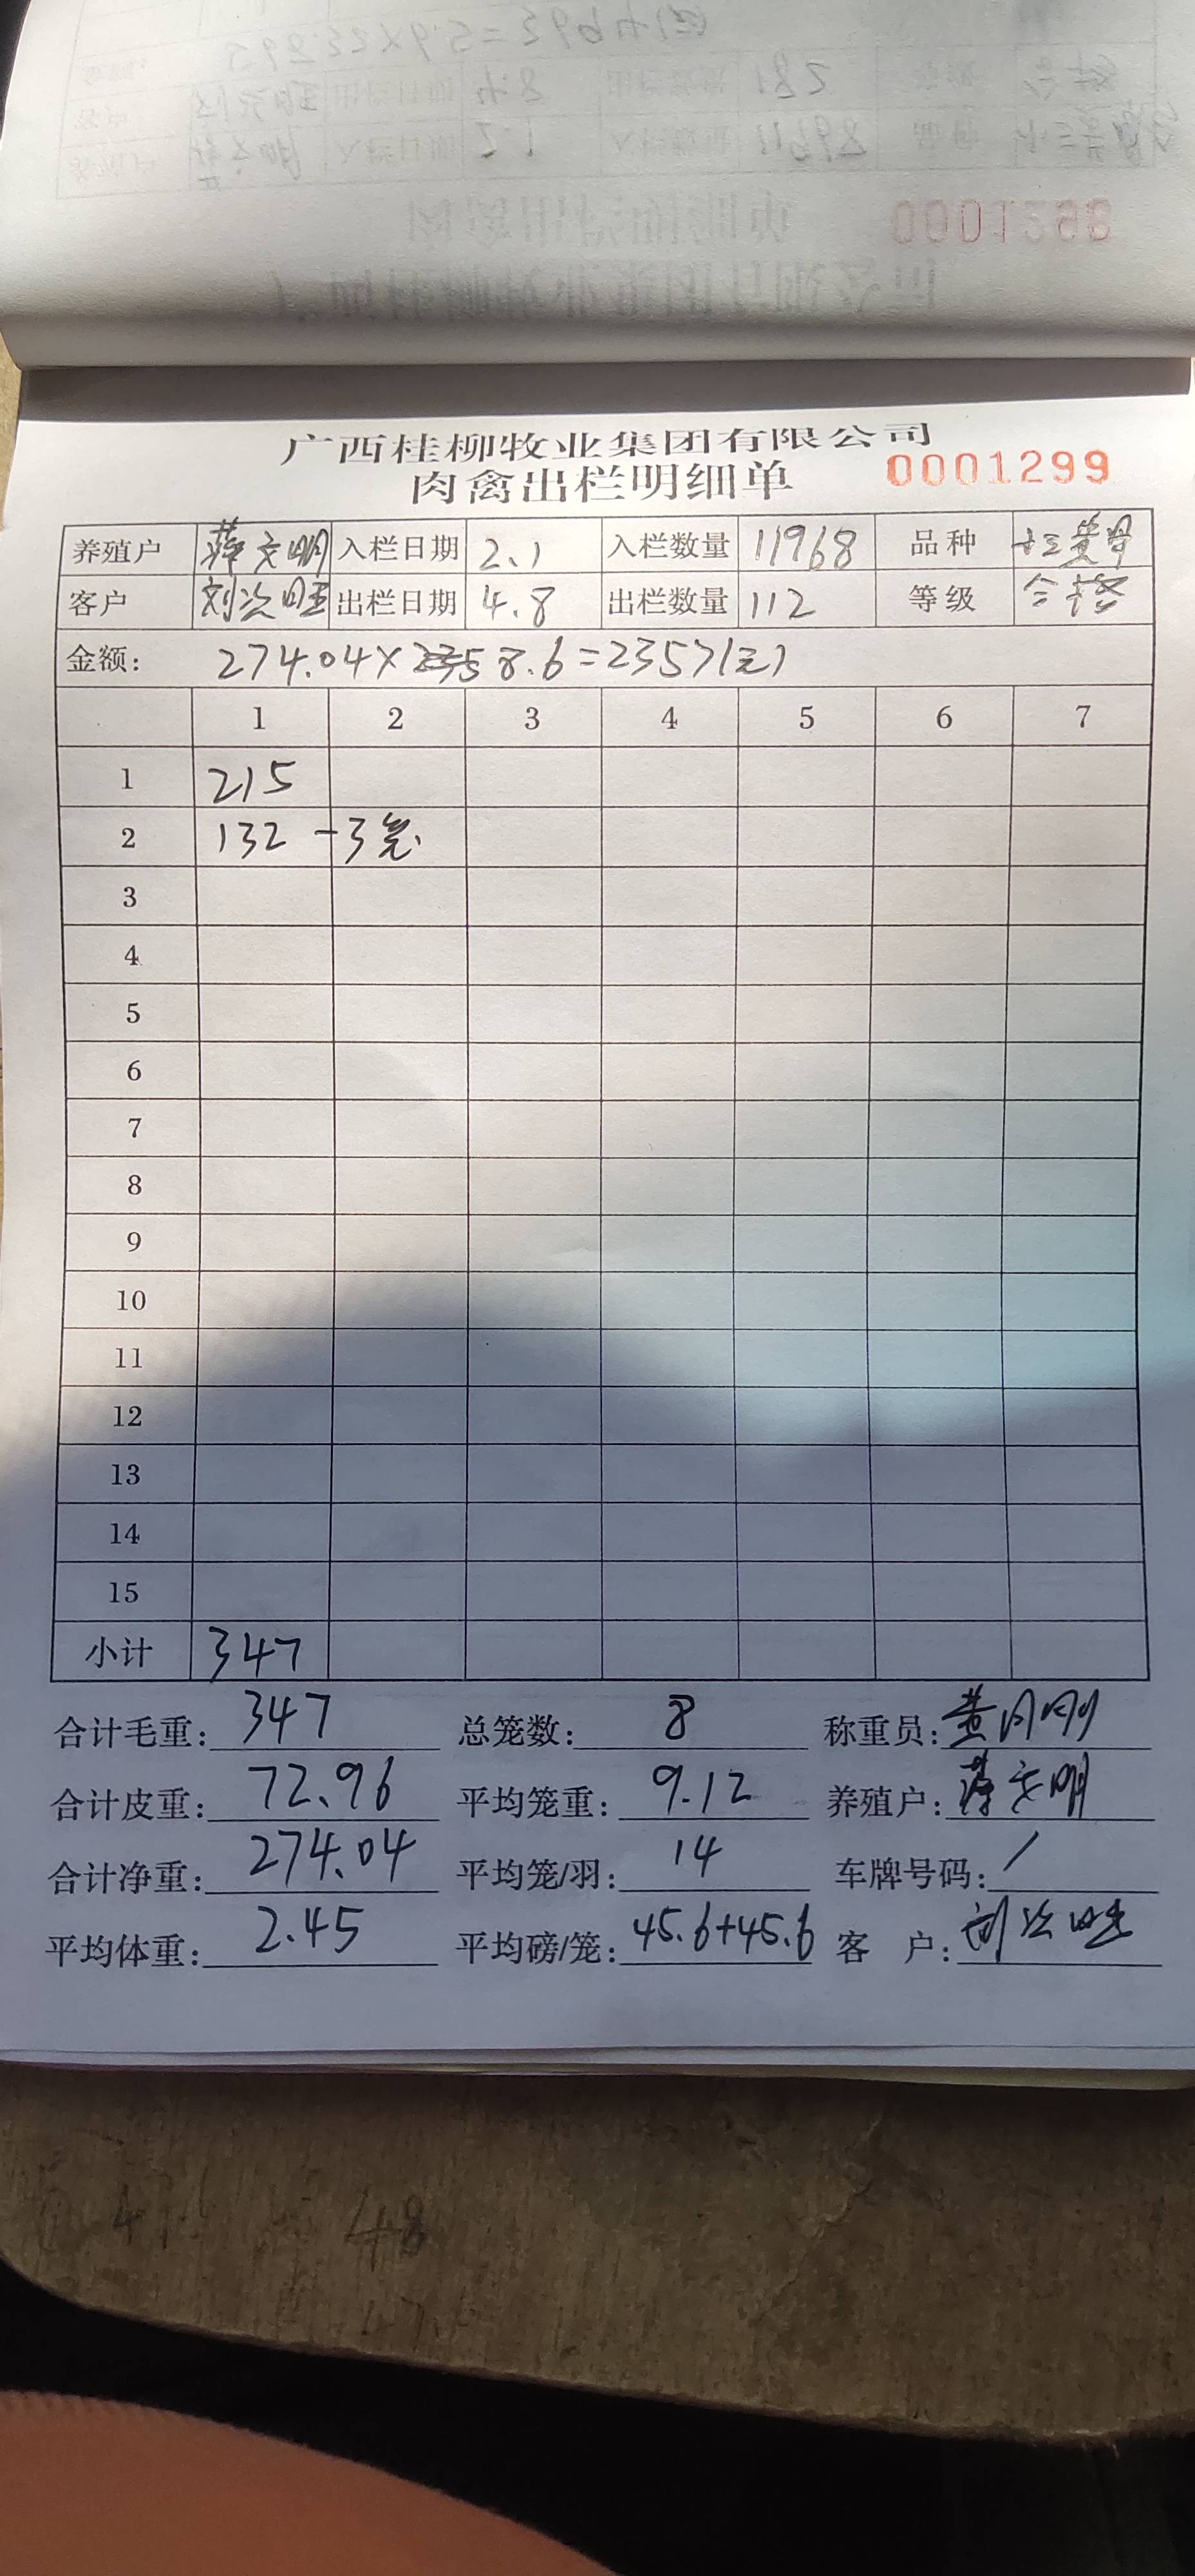 0001298
广西桂柳牧业集团有限公司
肉禽出栏明细单 0001299
养殖户 薛文明 入栏日期 2、1 入栏数量 11968 品种
客户 出栏日期 4.8 出栏数量 112 等级 合格
金额: 274.04× 8.6=2357(元)
1 2 3 4 5 6 7
1 215
2 132 -3笼
3
4
5
6
7
8
9
10
11
12
13
14
15
小计 347
合计毛重: 347 总笼数: 8 称重员:
合计皮重: 72.96 平均笼重: 9.12 养殖户: 薛文明
合计净重: 274.04 平均笼/羽: 14 车牌号码: /
平均体重: 2.45 平均磅/笼: 45.6+45.6 客 户:
48